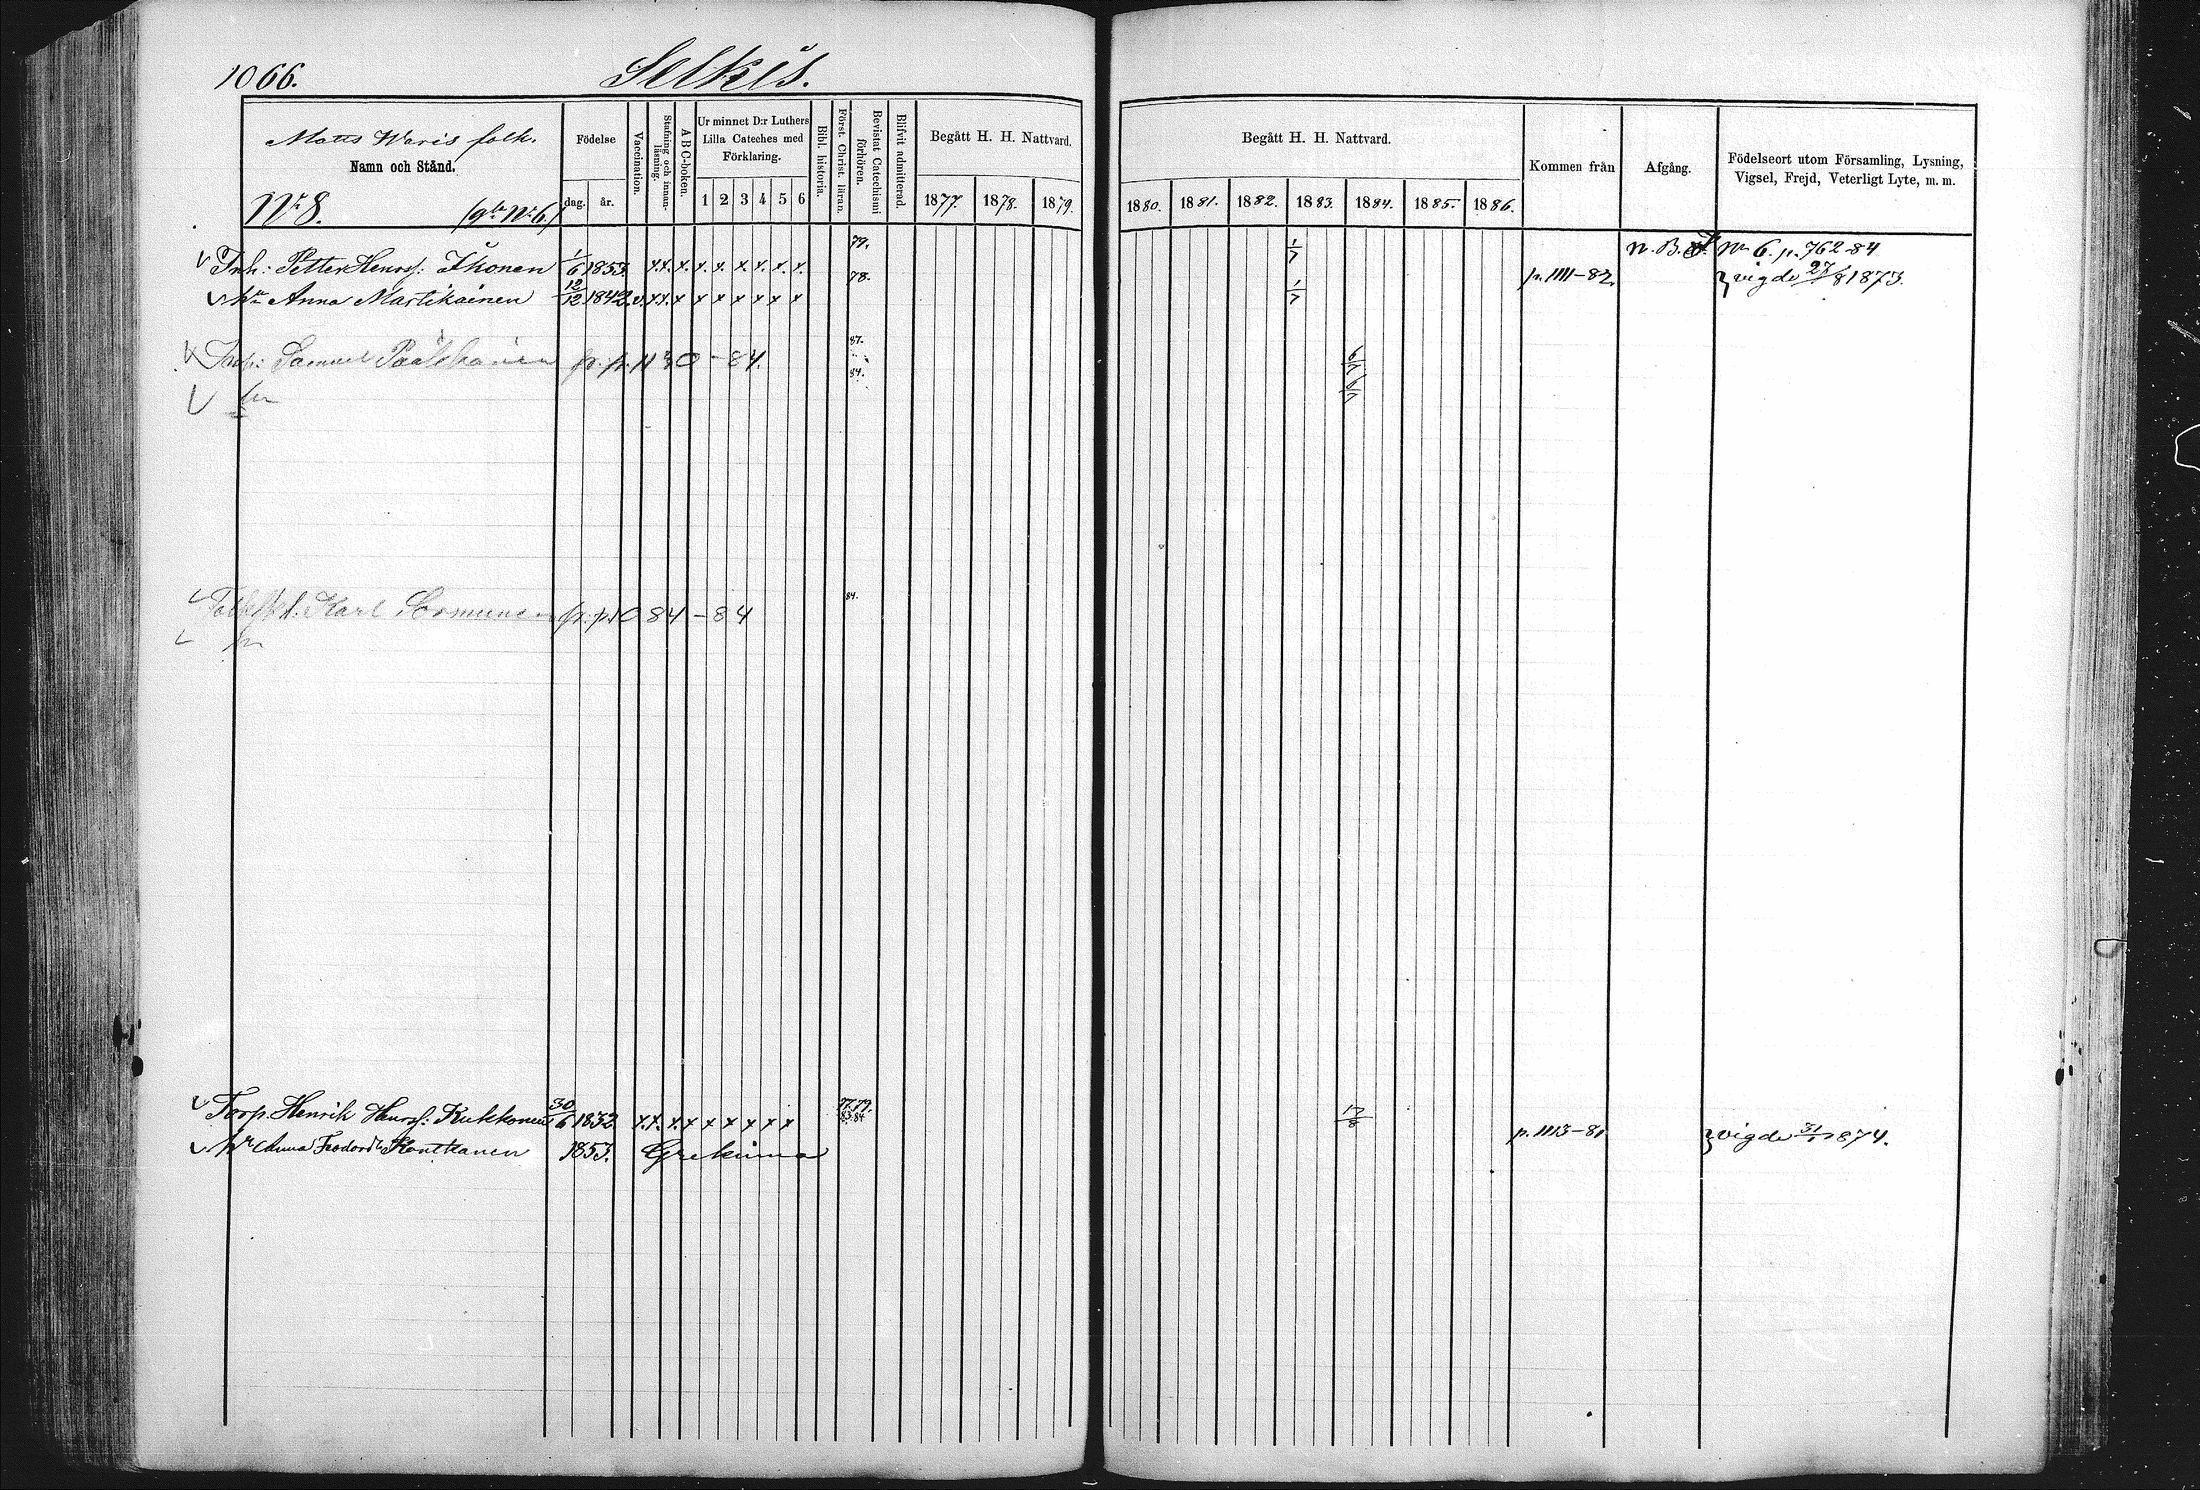 1066. Selkis.
Matts Waris folk.
Namn och Stånd.
Nr 8. Nr 6
Födelse
dag. år.
Vaccination.
Stafning och innanläsning.
ABC-boken.
Ur minnet D:r Luthers Lilla Cateches med Förklaring.
1 2 3 4 5 6
Bibl. historia.
Först. Christ. läran.
Bevistat Catechismi förhören.
Blifvit admitterad.
Begått H. H. Nattvard.
1877. 1878. 1879.
Begått H. H. Nattvard.
1880. 1881. 1882. 1883. 1884. 1885. 1886.
Kommen från
Afgång.
Födelseort utom Församling, Lysning, Vigsel, Frejd, Veterligt Lyte, m. m.
Inh: Petter Henrs: Ikonen 1/6 1853. x.x. x. x. x. x. x. x. x. 79. 1/7 N. B. Nr 6. p. 762-84
hu Anna Martikainen 12/12 1842. v. x.x. x x x x x x x 78. 1/7 p. 1111-82. vigde 27/8 1873.
Samuel fr. p. 1130-84. 87. 84.
hu
Karl Sormunen fr. p. 1084-84 84.
hu
Torp. Henrik Henrs: Kukkonen 30/6 1832. x.x. x. x x x x x x 77. 79. 83. 84 17/8 p. 1113-81 vigde 31/1 1874.
hu Anna Feodord:r Kontkanen 1853. Grekinna